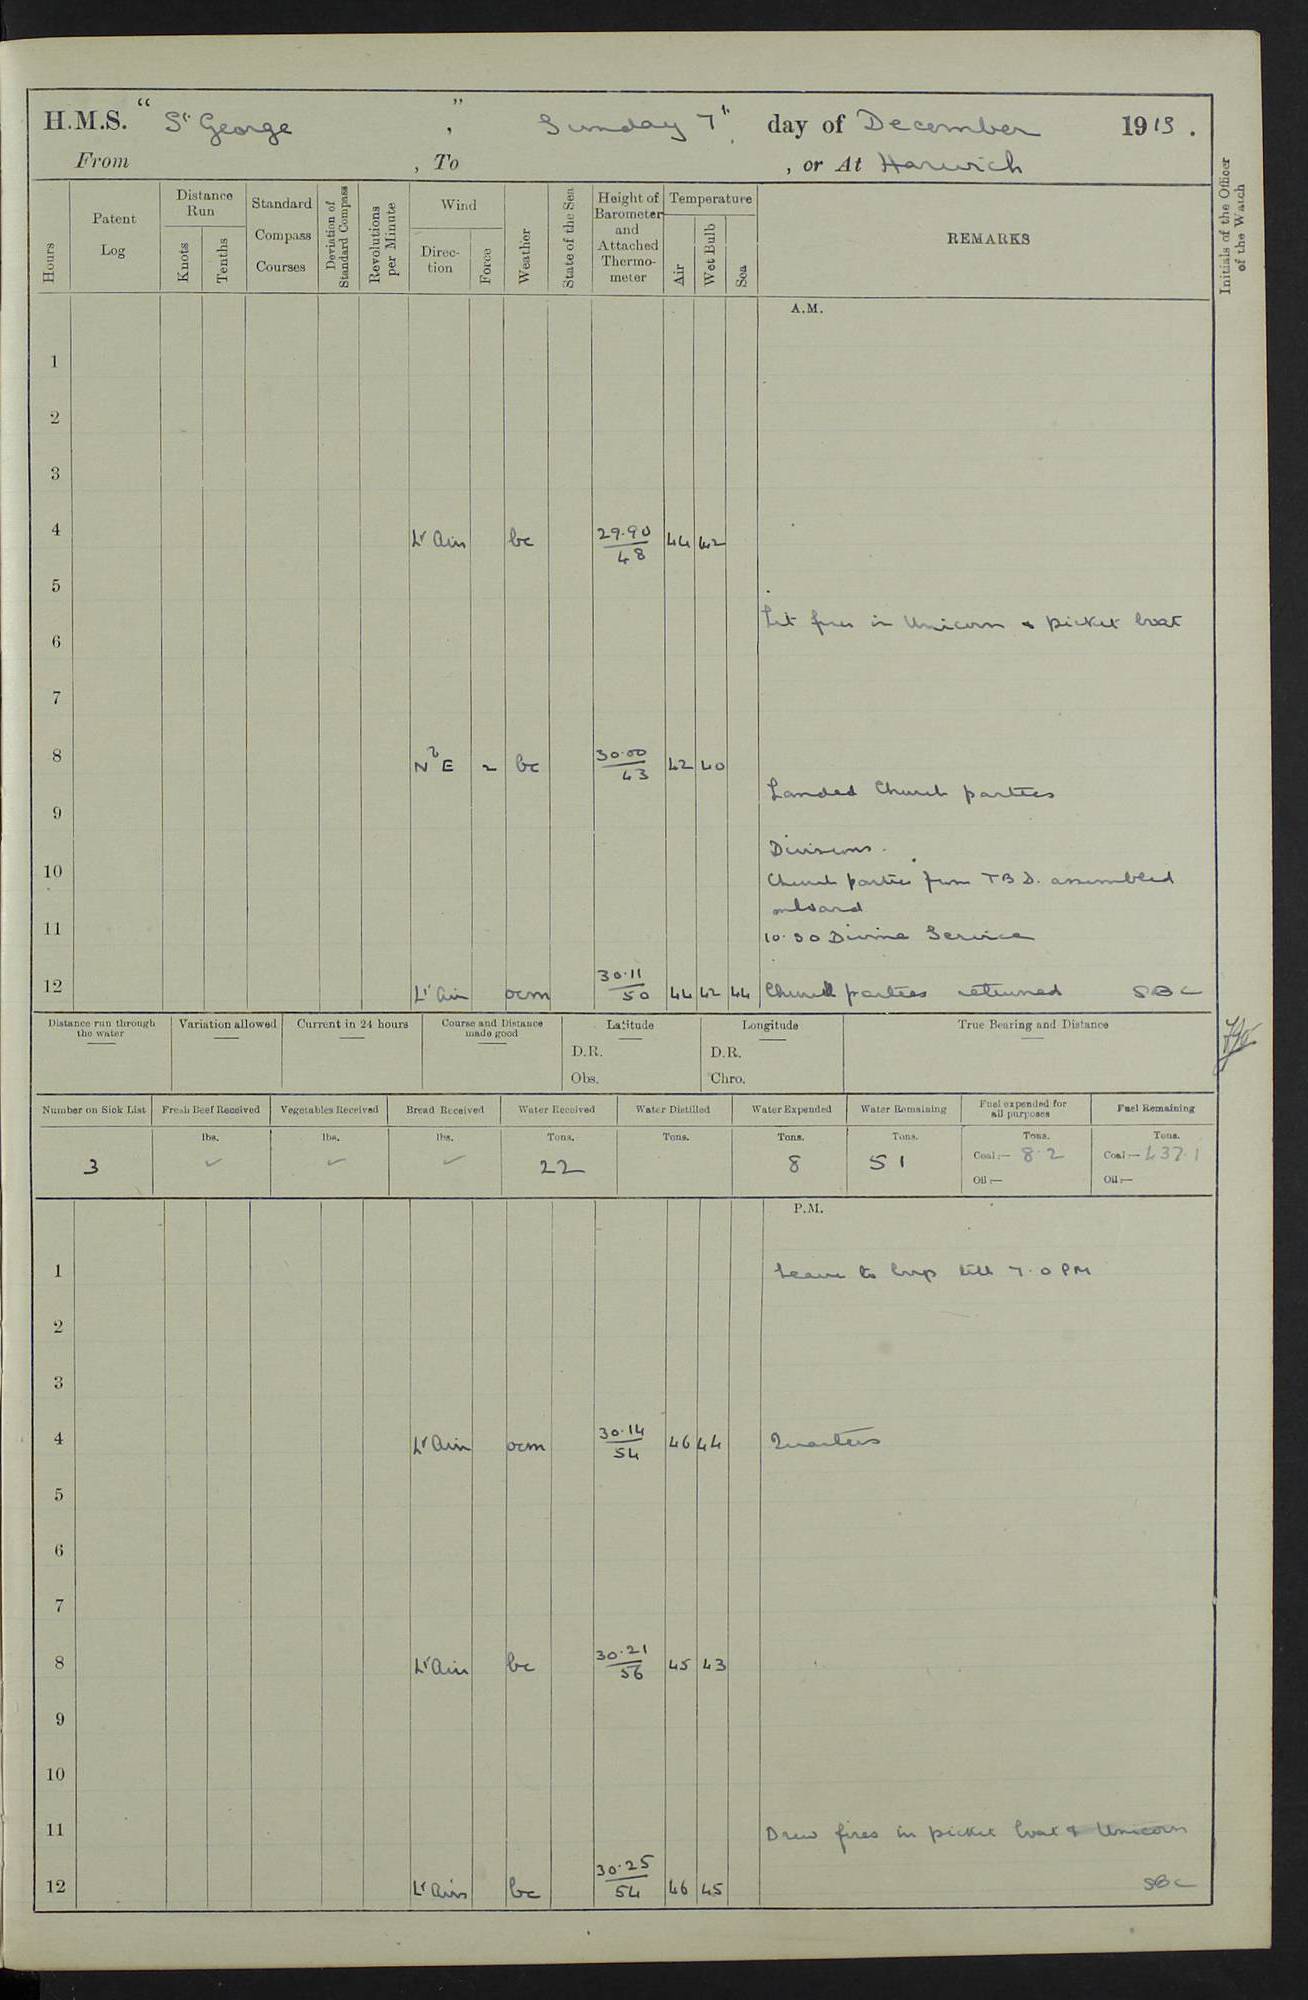 H.M.S. “ St George ” , Sunday 7th day of December 1913 .
From , To , or At Harwich
Hours
Patent Log
Distance Run
Knots
Tenths
Standard Compass Courses
Deviation of Standard Compass
Revolutions per Minute
Wind
Direction
Force
Weather
State of the Sea
Height of Barometer and Attached Thermometer
Temperature
Air
Wet Bulb
Sea
REMARKS
Initials of the Officer of the Watch
A.M.
1
2
3
4 Lt Airs bc 29.90/48 44 42
5
Lit fires in Unicorn & picket boat
6
7
8 N E 2 bc 30.00/43 42 40
Landed Church parties
9
Divisions.
10 Church parties from T B D. assembled
onboard
11 10.30 Divine Service
12 Lt Air ocm 30.11/50 44 42 44 Church parties returned SBC
Distance run through the water
Variation allowed
Current in 24 hours
Course and Distance made good
Latitude
D.R.
Obs.
Longitude
D.R.
Chro.
True Bearing and Distance
Number on Sick List Fresh Beef Received Vegetables Received Bread Received Water Received Water Distilled Water Expended Water Remaining Fuel expended for all purposes Fuel Remaining
lbs. lbs. lbs. Tons. Tons. Tons. Tons. Tons. Tons.
3 ✓ ✓ ✓ 22 8 51 Coal:— 8.2 Coal:— 437.1
Oil:— Oil:—
P.M.
1 Leave to trip till 7.0 PM
2
3
4 Lt Airs ocm 30.14/54 46 44 Quarters
5
6
7
8 Lt Airs bc 30.21/56 45 43
9
10
11 Drew fires in picket boat & Unicorn
12 Lt Airs bc 30.25/54 46 45 SBC